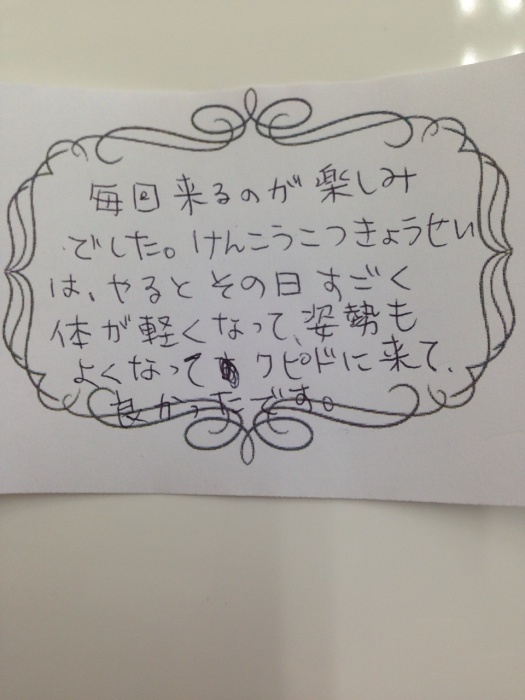 毎回来るのが楽しみ
でした。けんこうこつきょうせい
は、やるとその日すごく
体が軽くなって、姿勢も
よくなって クピドに来て、
良かったです。